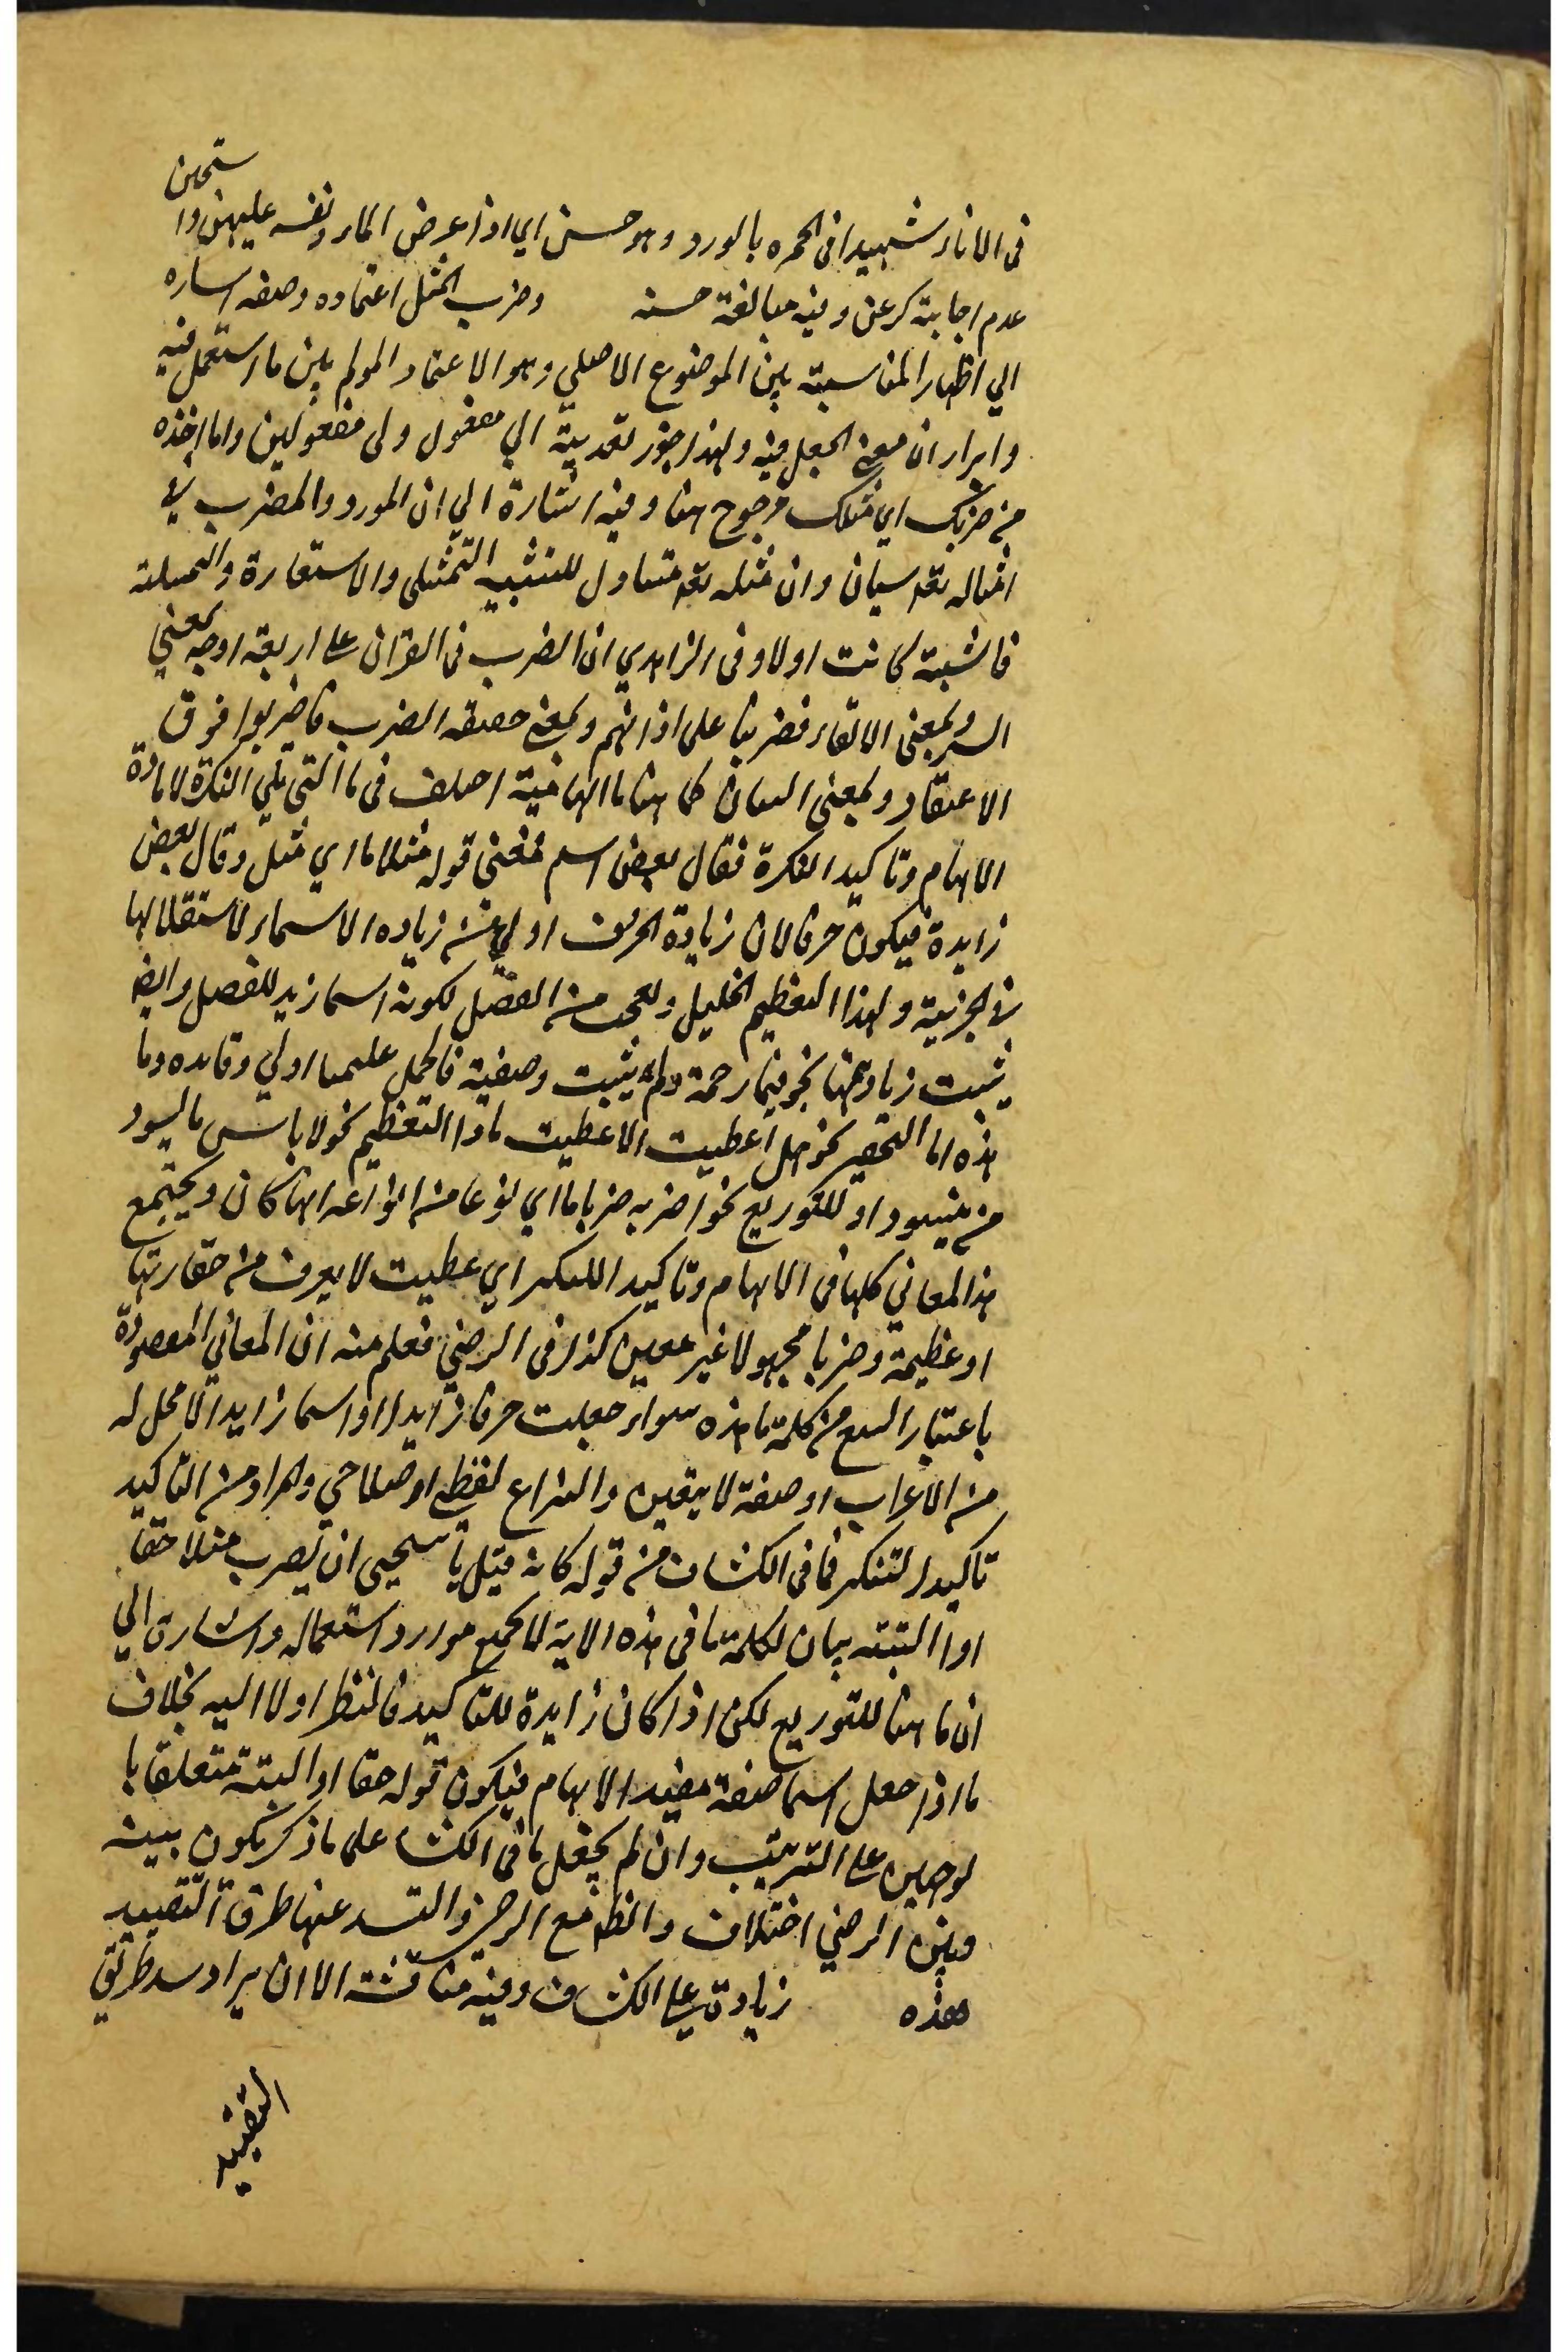 ستحين
فى الاناء شبيها فى الحمرة بالورد وهو حسن اي اذا عرض الماء نفسه عليهن وا
عدم اجابته كرعن وفيه مبالغة حسنه وضرب المثل اعتماده وصفه اساره
الي اظهار المناسبة بين الموضوع الاصلي وهو الاعتماد المولم بين ما استعمل فيه
وابراز ان معنى الجعل فيه ولهذا جوز تعديته الي مفعول ولى مفعولين واما اخذه
من ضربك اي مثلك مرجوح هنا وفيه اشارة الي ان المورد والمضرب في
امثاله تعه سيان وان مثله تعه متناول للتشبيه التمثيلى والاستعارة والتمثيلية
فاشبهة كانت اولا وفى الزاهدي ان الضرب فى القران على اربعة اوجه بمعنى
السير وبمعنى الالقاء فضربنا على اذانهم وبمعنى حقيقه الضرب فاضربوا فوق
الاعتقاد وبمعنى البيان كما هنا ما ابهامية اختلف فى ما التي تلي النكرة لافادة
الابهام وتاكيد النكرة فقال بعض اسم فمعنى قوله مثلا ما اي مثل وقال بعض
زايدة فيكون حرفا لان زيادة الحرف اولي من زياده الاسماء لاستقلالها
فى الجزئية ولهذا التعظيم الخليل وتعجب من الفصل لكونه اسما زيد للفصل وايضا
يثبت زيادتها نحو فبما رحمة ولم يثبت وصفية فالحمل عليها اولي وفايده وما
هذه اما التحقير نحو هل اعطيت الا عطية ما والتعظيم نحو لا باس ما ليسود
من يسود او للتنويع نحو اضربه ضربا ما اي نوعا من انواعه ايها كان ويجتمع
هذا المعاني كلها فى الابهام وتاكيد التنكير اي عطيت لا يعرف من حقارتها
او عظيمة وضربا مجهولا غير معين كذا فى الرضي فعلم منه ان المعاني المقصودة
باعتبار الوضع من كلمة ما هذه سواء جعلت حرفا زايدا او اسما زايدا لا محل له
من الاعراب او صفة لا يتعين والنزاع لفظي اوصلاحي والمراد من التاكيد
تاكيد التنكير فما فى الكشاف من قوله كانه قيل لا يستحيى ان يضرب مثلا حقا
او البتته بيان لكلمة ما فى هذه الاية لا لجميع موارد استعماله واشارة الي
ان ما هنا للتنويع لكن اذا كان زايدة للتاكيد فالنظر اولا اليه بخلاف
ما اذا جعل اسما صفة مفيد الابهام فيكون قوله حقا او البته متعلقا با
لوجهين على الترتيب وان لم يجعل ما فى الكشاف على ما ذكر يكون بينه
وبين الرضي اختلاف والظ مع الرضي والتسد عنها طرق التقييد
هذه زيادة على الكشاف وفيه مناقشة الا ان يراد سد طرق
التقييد